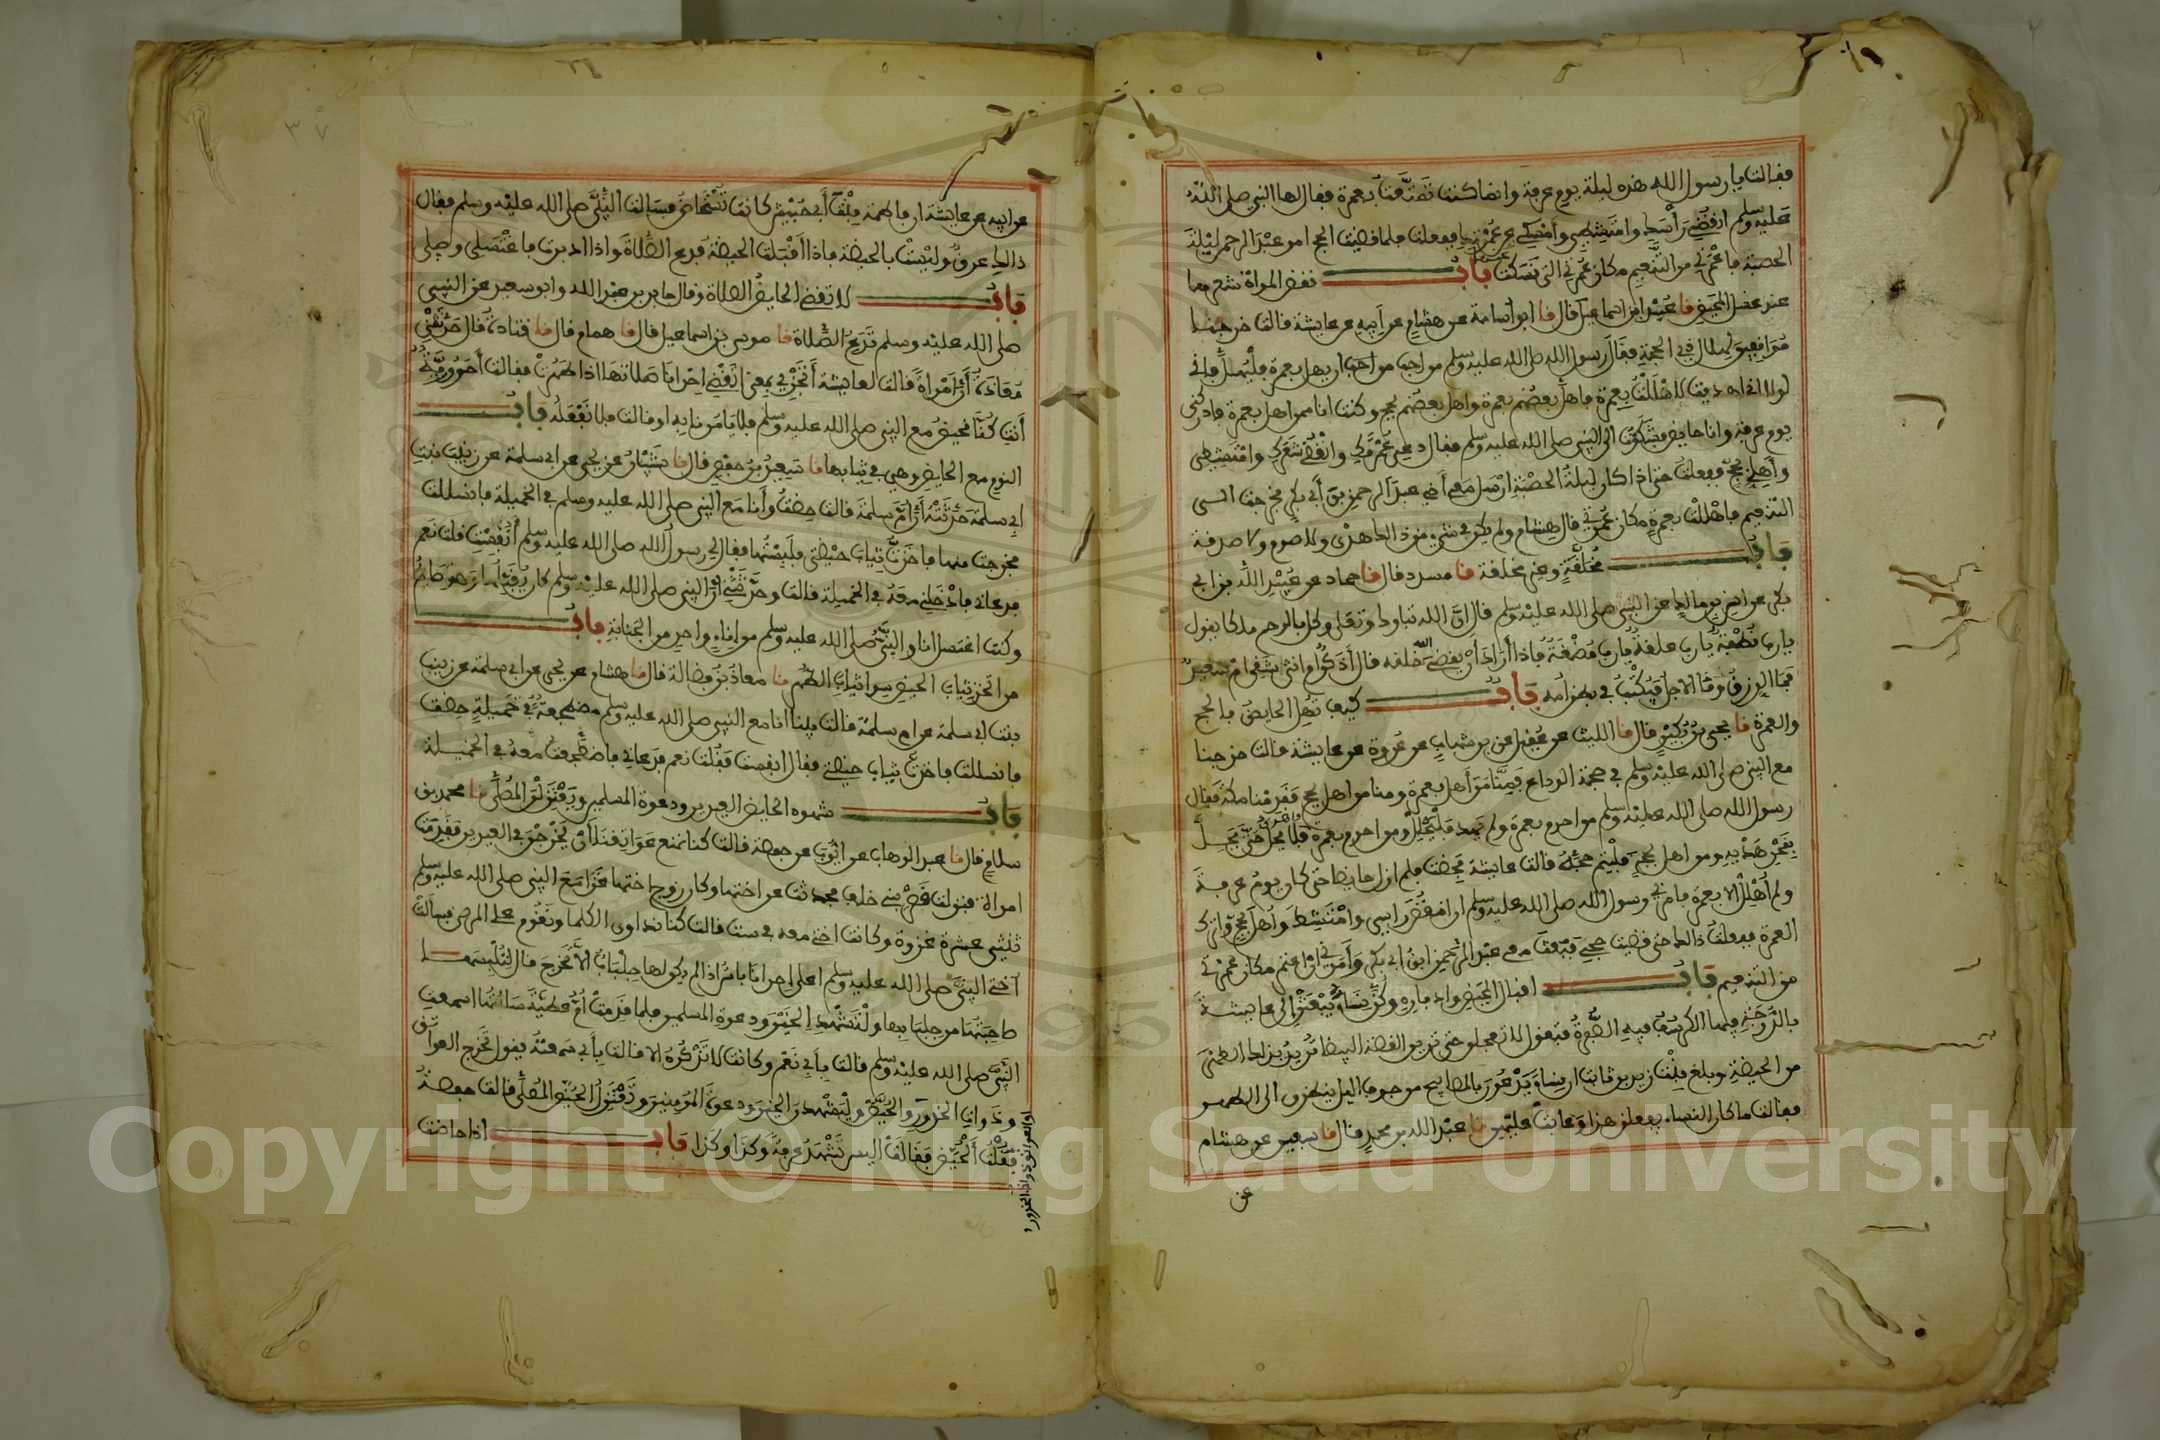 فقالت يا رسول الله هذه ليلة يوم عرفة وانما كنت تمتعت بعمرة فقال لها النبي صلى الله
عليه وسلم انقضي رأسك وامتشطي وأمسكي عن عمرتك ففعلت فلما قضيت الحج امر عبد الرحمن ليلة
الحصبة فاعمرني من التنعيم مكان عمرتي التي نسكت باب نقض المرأة شعرها
عند غسل المحيض نا عبيد ابن اسماعيل قال نا ابو أسامة عن هشام عن أبيه عن عائشة قالت خرجنا
موافقين لهلال ذي الحجة فقال رسول الله صلى الله عليه وسلم من احب ان يهل بعمرة فليهلل فاني
لولا اني اهديت لاهللت بعمرة فاهل بعضهم بعمرة واهل بعضهم بحج وكنت انا ممن اهل بعمرة فادركني
يوم عرفة وانا حايض فشكوت الى النبي صلى الله عليه وسلم فقال دعي عمرتك وانقضي شعرك وامتشطي
وأهلي بحج ففعلت حتى اذا كان ليلة الحصبة ارسل معي أخي عبد الرحمن بن أبي بكر فخرجت الى
التنعيم فاهللت بعمرة مكان عمرتي قال هشام ولم يكن في شيء من ذلك هدي ولا صوم ولا صدقة
باب مخلقة وغير مخلقة نا مسدد قال نا حماد عن عبيد الله بن ابي
بكر عن انس بن مالك عن النبي صلى الله عليه وسلم قال ان الله تبارك وتعلى وكل بالرحم ملكا يقول
يا رب نطفة يا رب علقة يا رب مضغة فاذا أراد أن يقضي الله خلقه قال أذكر أم انثى شقي ام سعيد
فما الرزق وما الاجل فيكتب في بطن امه باب كيف تهل الحايض بالحج
والعمرة نا يحيى بن بكير قال نا الليث عن عقيل عن بن شهاب عن عروة عن عايشة قالت خرجنا
مع النبي صلى الله عليه وسلم في حجة الوداع فمنا من أهل بعمرة ومنا من اهل بحج فقدمنا مكة فقال
رسول الله صلى الله عليه وسلم من احرم بعمرة ولم يهد فليحلل ومن احرم بعمرة واهدى فلا يحل حتى يحل
بنحر هديه ومن اهل بحج فليتم حجه قالت عايشة فحضت فلم ازل حايضا حتى كان يوم عرفة
ولم أهلل الا بعمرة فامرني رسول الله صلى الله عليه وسلم ان انقض راسي وامتشط وأهل بحج واترك
العمرة ففعلت ذالك حتى قضيت حجي فبعث معي عبد الرحمن ابن ابي بكر وأمرني ان اعتمر مكان عمرتي
من التنعيم باب اقبال المحيض وادباره وكن نساء يبعثن الى عايشة
بالدرجة فيها الكرسف فيه الصفرة فتقول لا تعجلن حتى ترين القصة البيضا تريد بذلك الطهر
من الحيضة وبلغ بنت زيد بن ثابت ان نساء يدعون بالمصابيح من جوف اليل ينظرن الى الطهر
فقالت ما كان النساء يفعلن هذا وعابت عليهن نا عبد الله بن محمد قال نا سفين عن هشام
عن
٣٧
عن ابيه عن عايشة ان فاطمة بنت أبي حبيش كانت تستحاض فسالت النبي صلى الله عليه وسلم فقال
ذالك عرق وليست بالحيضة فاذا اقبلت الحيضة فدع الصلاة واذا ادبرت فاغتسلي وصلي
باب لا تقضي الحايض الصلاة وقال جابر بن عبد الله وابو سعيد عن النبي
صلى الله عليه وسلم تدع الصلاة نا موسى بن اسماعيل قال نا همام قال نا قتادة قال حدثتني
معاذة أن امرأة قالت لعايشة أتجزي بمعنى اتقضي احدانا صلاتها اذا طهرت فقالت أحرورية
أنت كنا نحيض مع النبي صلى الله عليه وسلم فلا يامرنا به او قالت فلا نفعله باب
النوم مع الحايض وهي في ثيابها نا سعد بن حفص قال نا شيبان عن يحيى عن ابي سلمة عن زينب بنت
ابي سلمة حدثته أن أم سلمة قالت حضت وأنا مع النبي صلى الله عليه وسلم في الخميلة فانسللت
فخرجت منها فاخذت ثياب حيضتي فلبستها فقال لي رسول الله صلى الله عليه وسلم أنفست قلت نعم
فدعاني فادخلني معه في الخميلة قالت وحدثتني أن النبي صلى الله عليه وسلم كان يقبلها وهو صايم
وكنت اغتسل انا والنبي صلى الله عليه وسلم من اناء واحد من الجنابة باب
من اتخذ ثياب الحيض سوا ثياب الطهر نا معاذ بن فضالة قال نا هشام عن يحيى عن ابي سلمة عن زينب
بنت ابي سلمة عن ام سلمة قالت بينا انا مع النبي صلى الله عليه وسلم مضطجعة في خميلة حضت
فانسللت فاخذت ثياب حيضتي فقال انفست فقلت نعم فدعاني فاضطجعت معه في الخميلة
باب شهود الحايض العيدين ودعوة المسلمين ويعتزلن المصلى نا محمد بن
سلام قال نا عبد الوهاب عن ايوب عن حفصة قالت كنا نمنع عواتقنا أن يخرجن في العيدين فقدمت
امراة فنزلت قصر بني خلف فحدثت عن اختها وكان زوج اختها غزا مع النبي صلى الله عليه وسلم
ثنتي عشرة غزوة وكانت اختي معه في ست قالت كنا نداوي الكلما ونقوم على المرضى فسألت
أختي النبي صلى الله عليه وسلم اعلى احدانا باس اذا لم يكن لها جلباب الا تخرج قال لتلبسها
صاحبتها من جلبابها ولتشهد الخير ودعوة المسلمين فلما قدمت ام عطية سالتها اسمعت
النبي صلى الله عليه وسلم قالت بأبي نعم وكانت لا تذكره الا قالت بأبي سمعته يقول تخرج العواتق
وذوات الخدور والحيض وليشهدن الخير ودعوة المومنين ويعتزل الحيض المصلى قالت حفصة
فقلت آلحيض فقالت أليس تشهد عرفة وكذا وكذا باب اذا حاضت
او العواتق ذوات الخدور
Copyright © King Saud University